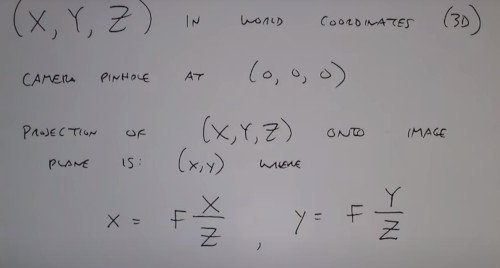 (X, Y, Z) IN WORLD COORDINATES (3D)
CAMERA PINHOLE AT (0, 0, 0)
PROJECTION OF (X, Y, Z) ONTO IMAGE
PLANE IS: (x, y) WHERE
x = F X/Z , y = F Y/Z